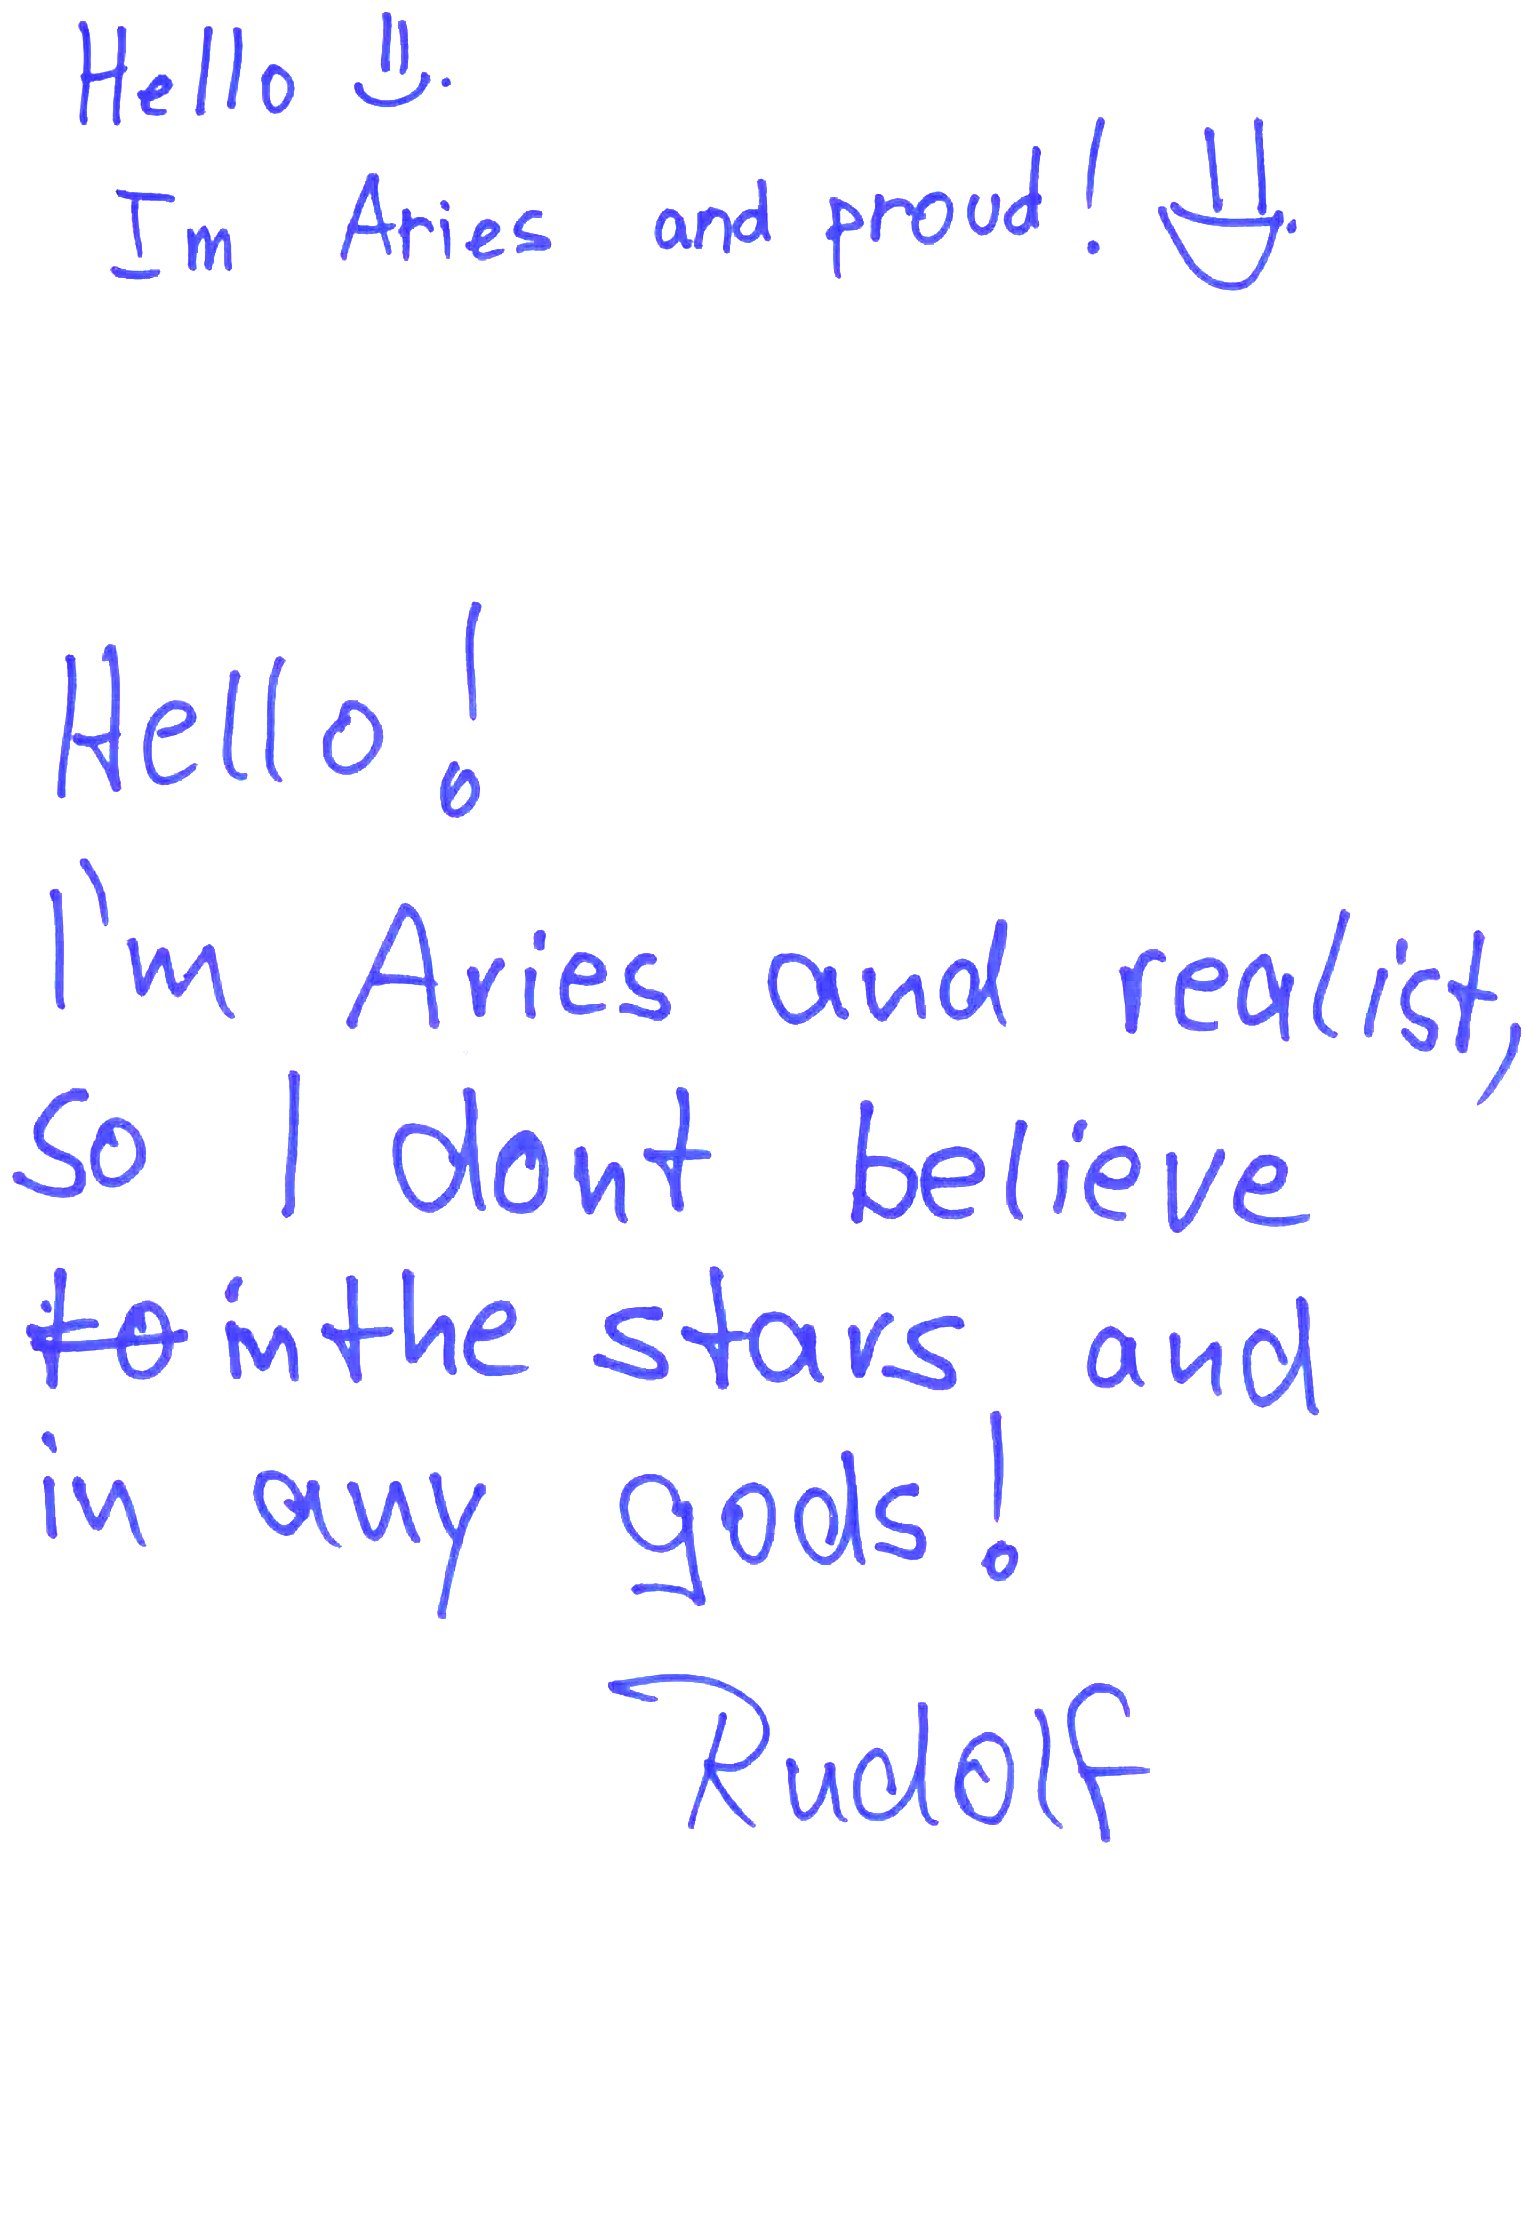 Hello
Im Aries and proud!
Hello!
I'm Aries and realist,
so I dont believe
to in the stars and
in any gods!
Rudolf